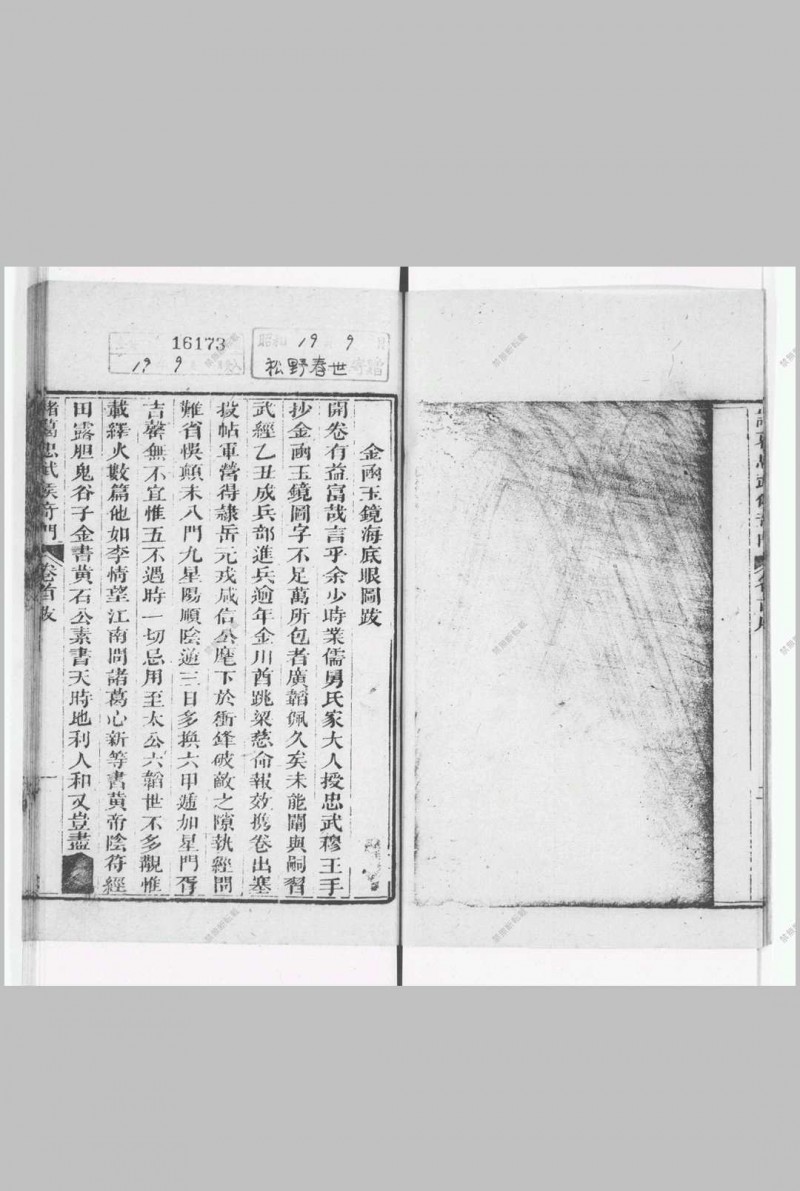 16173
19 9
19 9
松野春世
金函玉鏡海底眼圖跋
開卷有益富哉言乎余少時業儒舅氏家大人授忠武穆王手
抄金函玉鏡圖字不足萬所包者廣韜佩久矣未能闡與嗣習
武經乙丑成兵部進兵逾年金川酋跳梁慈命報效携卷出塞
投帖軍營得隷岳元戎咸信公麾下於衝鋒破敵之隙執經問
難省悞顛末八門九星陽順陰逆三日多換六甲遁加星門胥
吉罄無不宜惟五不遇時一切忌用至太公六韜世不多觀惟
載繹火數篇他如李情望江南問諸葛心新等書黄帝陰符經
田露胆鬼谷子金書黄石公素書天時地利人和又豈盡
諸葛忠武侯奇門 卷首跋